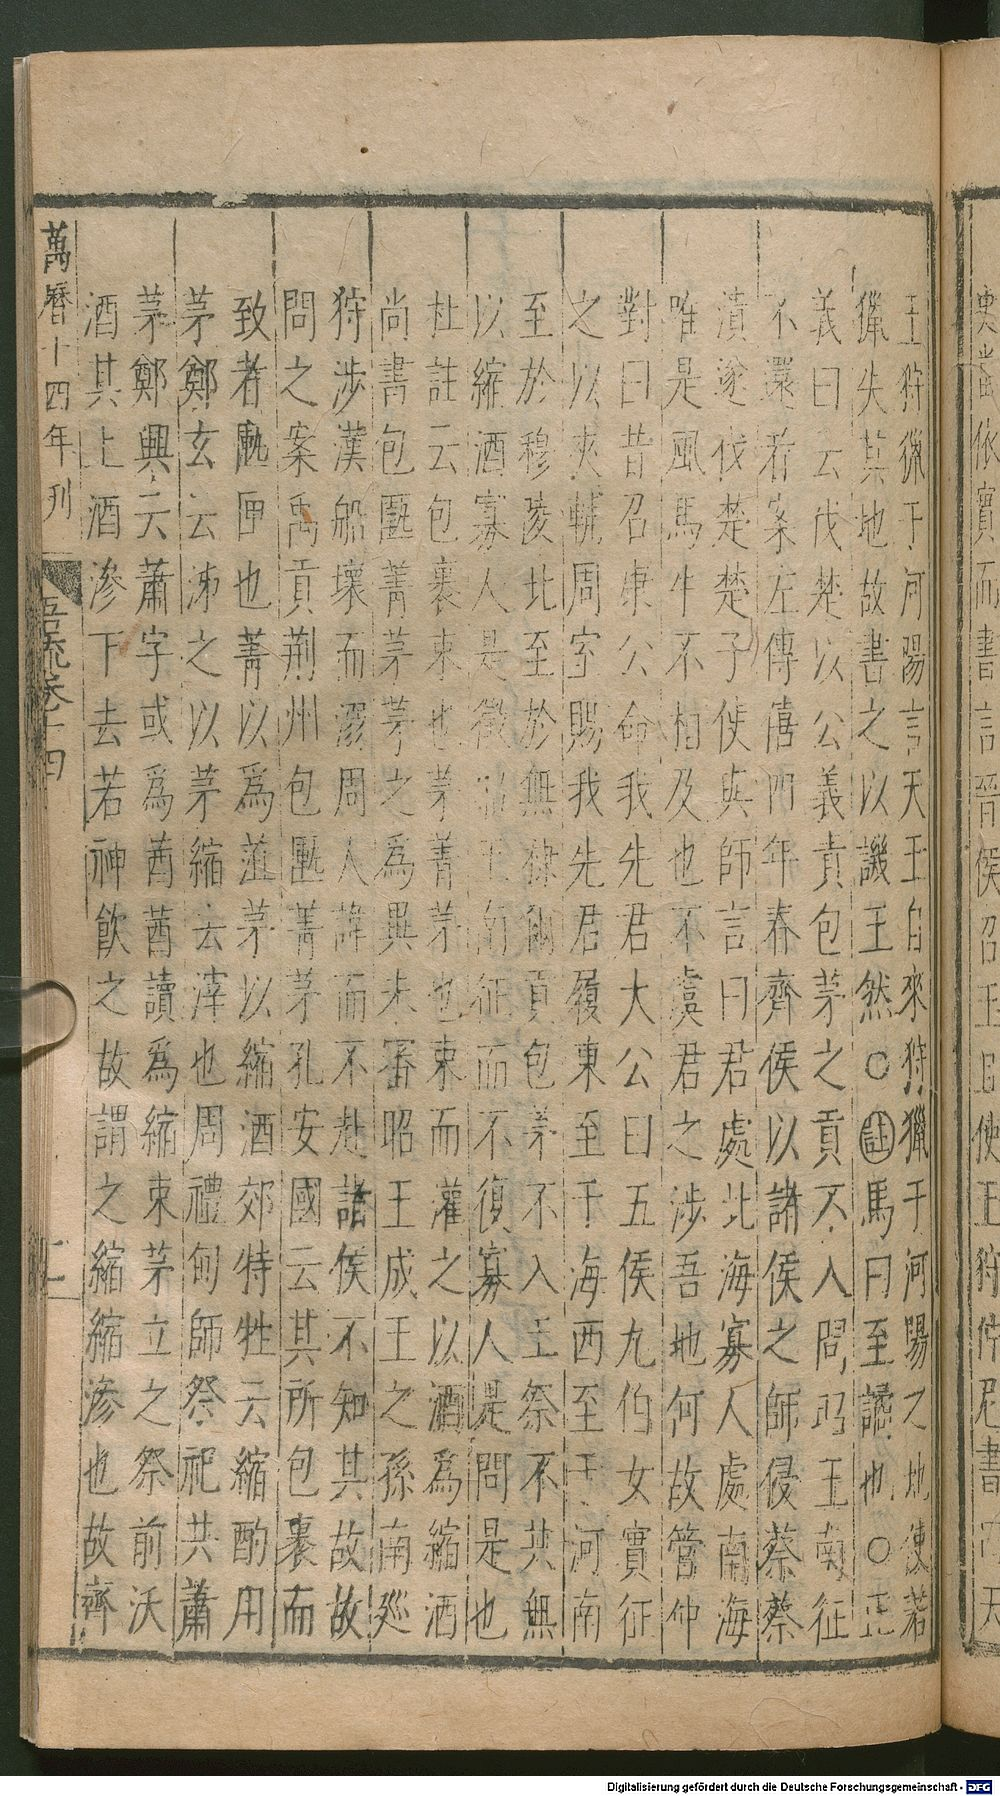 王狩獵于河陽言天王自來狩獵于河陽之地使若
獵失其地故書之以譏王然○註馬曰至譎也○正
義曰云伐楚以公義責包茅之貢不入問昭王南征
不還者案左傳僖四年春齊侯以諸侯之師侵蔡蔡
潰遂伐楚楚子使與師言曰君處北海寡人處南海
唯是風馬牛不相及也不虞君之涉吾地何故管仲
對曰昔召康公命我先君大公曰五侯九伯女實征
之以夾輔周室賜我先君履東至于海西至于河南
至於穆陵北至於無棣爾貢包茅不入王祭不共無
以縮酒寡人是徵昭王南征而不復寡人是問是也
杜註云包裹束也茅菁茅也束而灌之以酒爲縮酒
尚書包匭菁茅茅之爲異未審昭王成王之孫南廵
狩涉漢船壞而溺周人諱而不赴諸侯不知其故故
問之案禹貢荆州包匭菁茅孔安國云其所包裹而
致者匭匣也菁以爲菹茅以縮酒郊特牲云縮酌用
茅鄭玄云泲之以茅縮去滓也周禮甸師祭祀共蕭
茅鄭興云蕭字或爲莤莤讀爲縮束茅立之祭前沃
酒其上酒滲下去若神飮之故謂之縮縮滲也故齊
萬曆十四年刊
吾疏卷十四
二
史尚依實而書言晉侯召王且使王狩仲尼書曰天
Digitalisierung gefördert durch die Deutsche Forschungsgemeinschaft - DFG